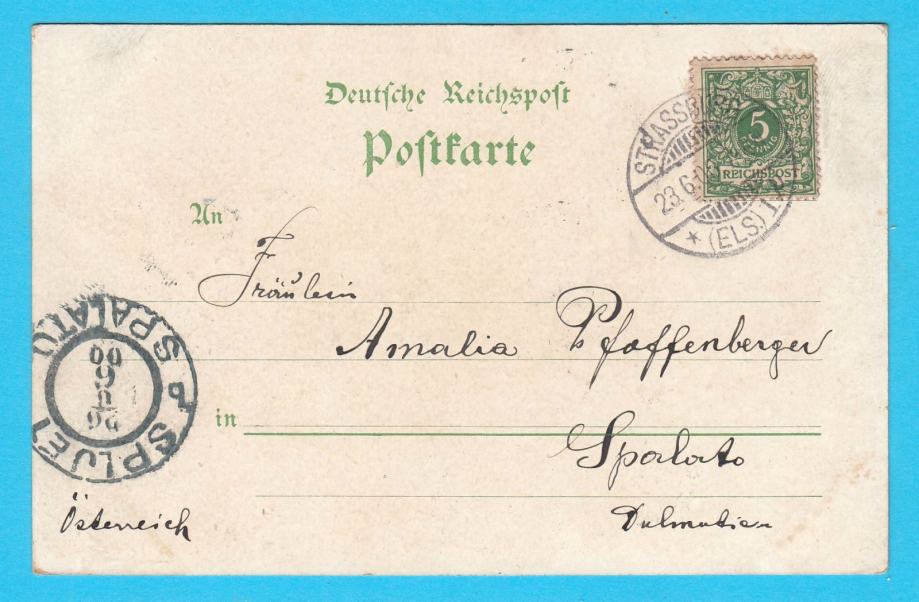 Deutsche Reichspost
Postkarte
5
PFENNIG
REICHSPOST
STRASSB
23.6.
* (ELS.) 1
An
Fräulein
Amalia Pfaffenberger
in
Spalato
Dalmatien
Österreich
SPALATO
SPLJET